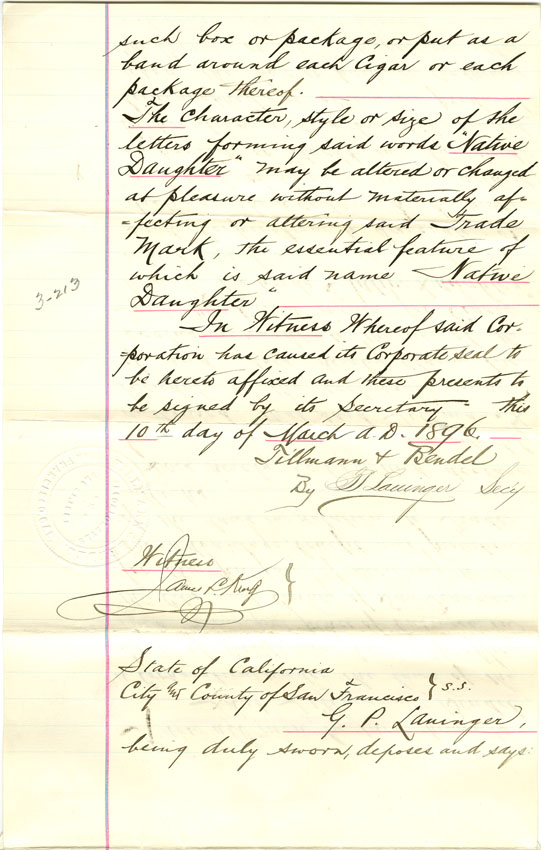 such box or package, or put as a
band around each Cigar or each
package thereof.
The character, style or size of the
letters forming said words "Native
Daughter" may be altered or changed
at pleasure without materially af=
=fecting or altering said Trade
Mark, the essential feature of
which is said name "Native
Daughter"
3-213
In Witness Whereof said Cor-
=poration has caused its Corporate seal to
be hereto affixed and these presents to
be signed by its Secretary this
10th day of March A.D. 1896.
Tillmann & Bendel
By Lauinger Sec'y
Witness
James P. King
State of California
City and County of San Francisco } S.S.
G. P. Lauinger,
being duly sworn, deposes and says: